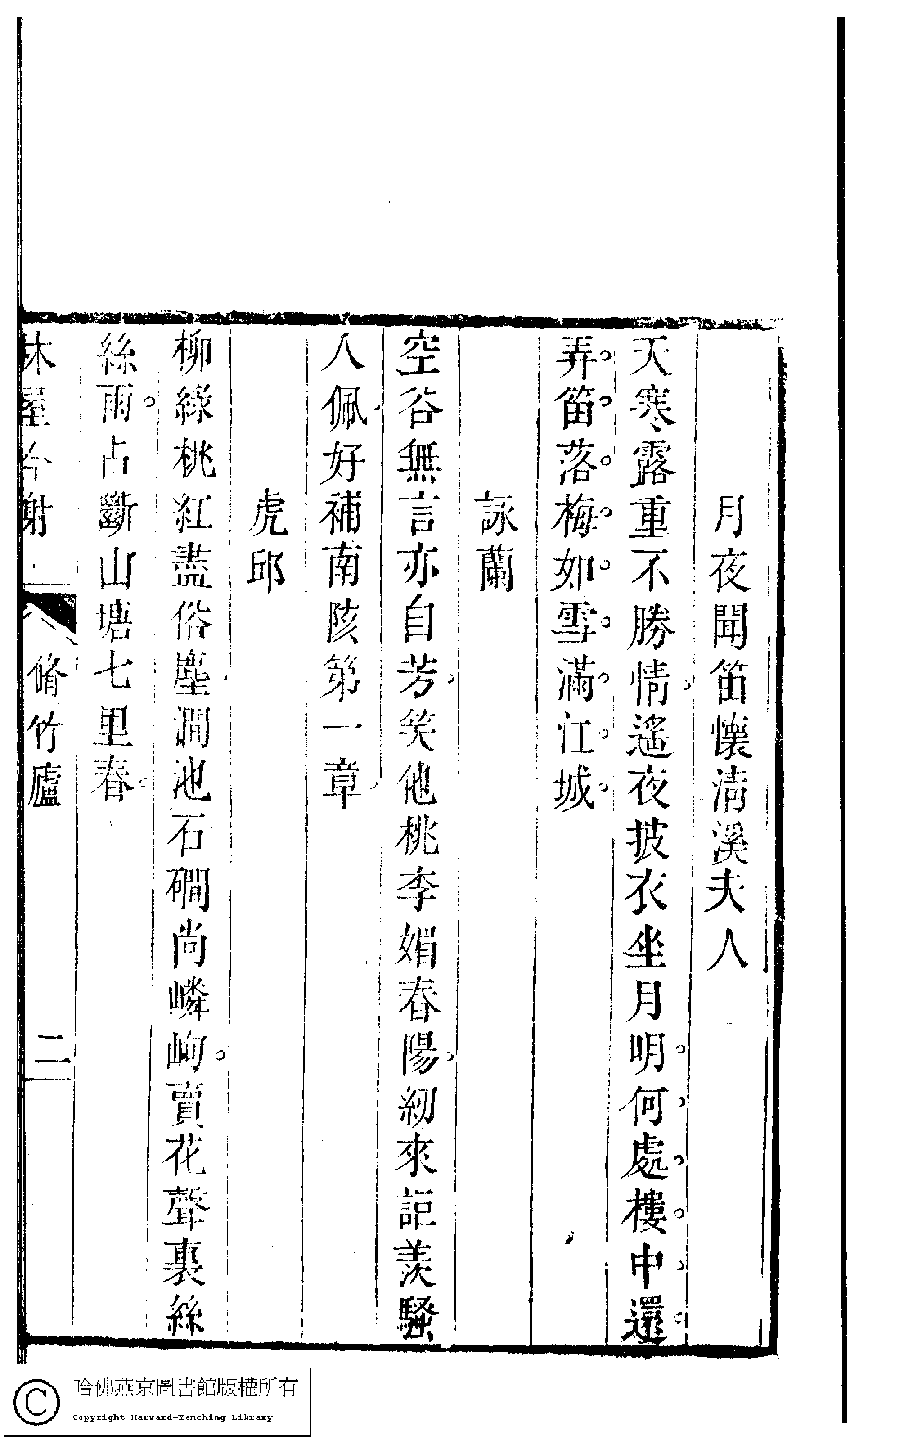 月夜聞笛懷淸溪夫人
天寒露重不勝情遙夜披衣坐月明何處樓中還
弄笛落梅如雪滿江城
詠蘭
空谷無言亦自芳笑他桃李媚春陽紉來詎羨騷
人佩好補南陔第一章
虎邱
柳綠桃紅盡俗塵澗池石磵尚嶙峋賣花聲裏絲
絲雨占斷山塘七里春
林屋吟榭
脩竹廬
二
哈佛燕京圖書館版權所有
Copyright Harvard-Yenching Library